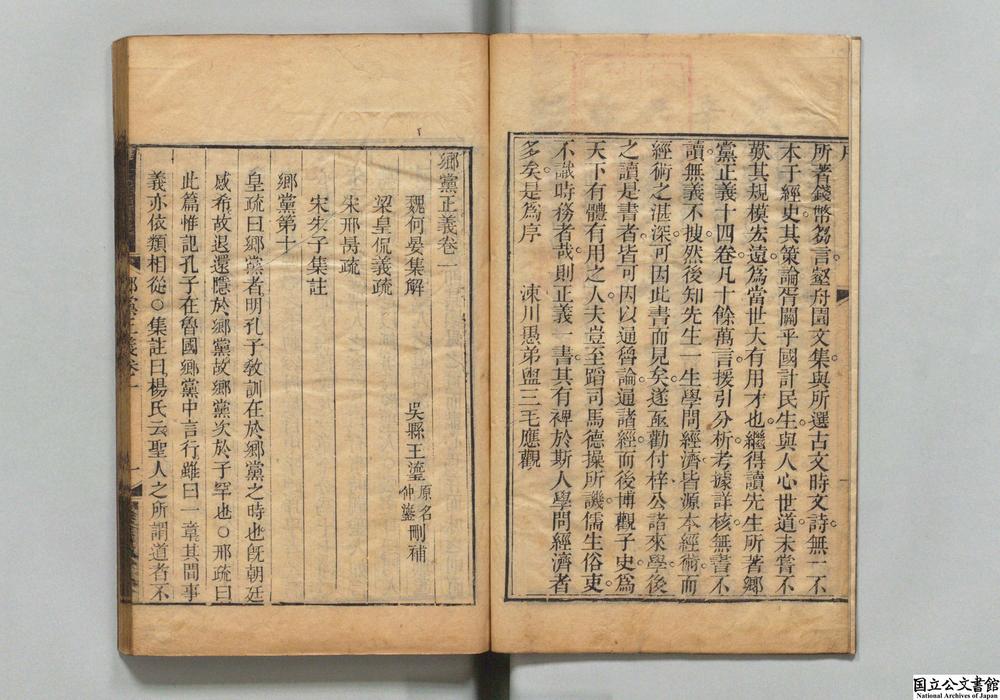 所著錢幣芻言壑舟園文集與所選古文時文詩無一不
本于經史其策論胥關乎國計民生與人心世道未嘗不
歎其規模宏遠為當世大有用才也繼得讀先生所著鄉
黨正義十四卷凡十餘萬言援引分析考據詳核無書不
讀無義不搜然後知先生一生學問經濟皆源本經術而
經術之湛深可因此書而見矣遂亟勸付梓公諸來學後
之讀是書者皆可因以通魯論通諸經而後博觀子史為
天下有體有用之人夫豈至蹈司馬德操所譏儒生俗吏
不識時務者哉則正義一書其有裨於斯人學問經濟者
多矣是為序　　涑川愚弟盥三毛應觀
鄉黨正義卷一
魏何晏集解　　吳縣王瀅原名仲鎏刪補
梁皇侃義疏
宋邢昺疏
宋朱子集註
鄉黨第十
皇疏曰鄉黨者明孔子教訓在於鄉黨之時也既朝廷
感希故退還隱於鄉黨故鄉黨次於子罕也○邢疏曰
此篇惟記孔子在魯國鄉黨中言行雖曰一章其間事
義亦依類相從○集註曰楊氏云聖人之所謂道者不
鄉黨正義卷一　一
国立公文書館
National Archives of Japan